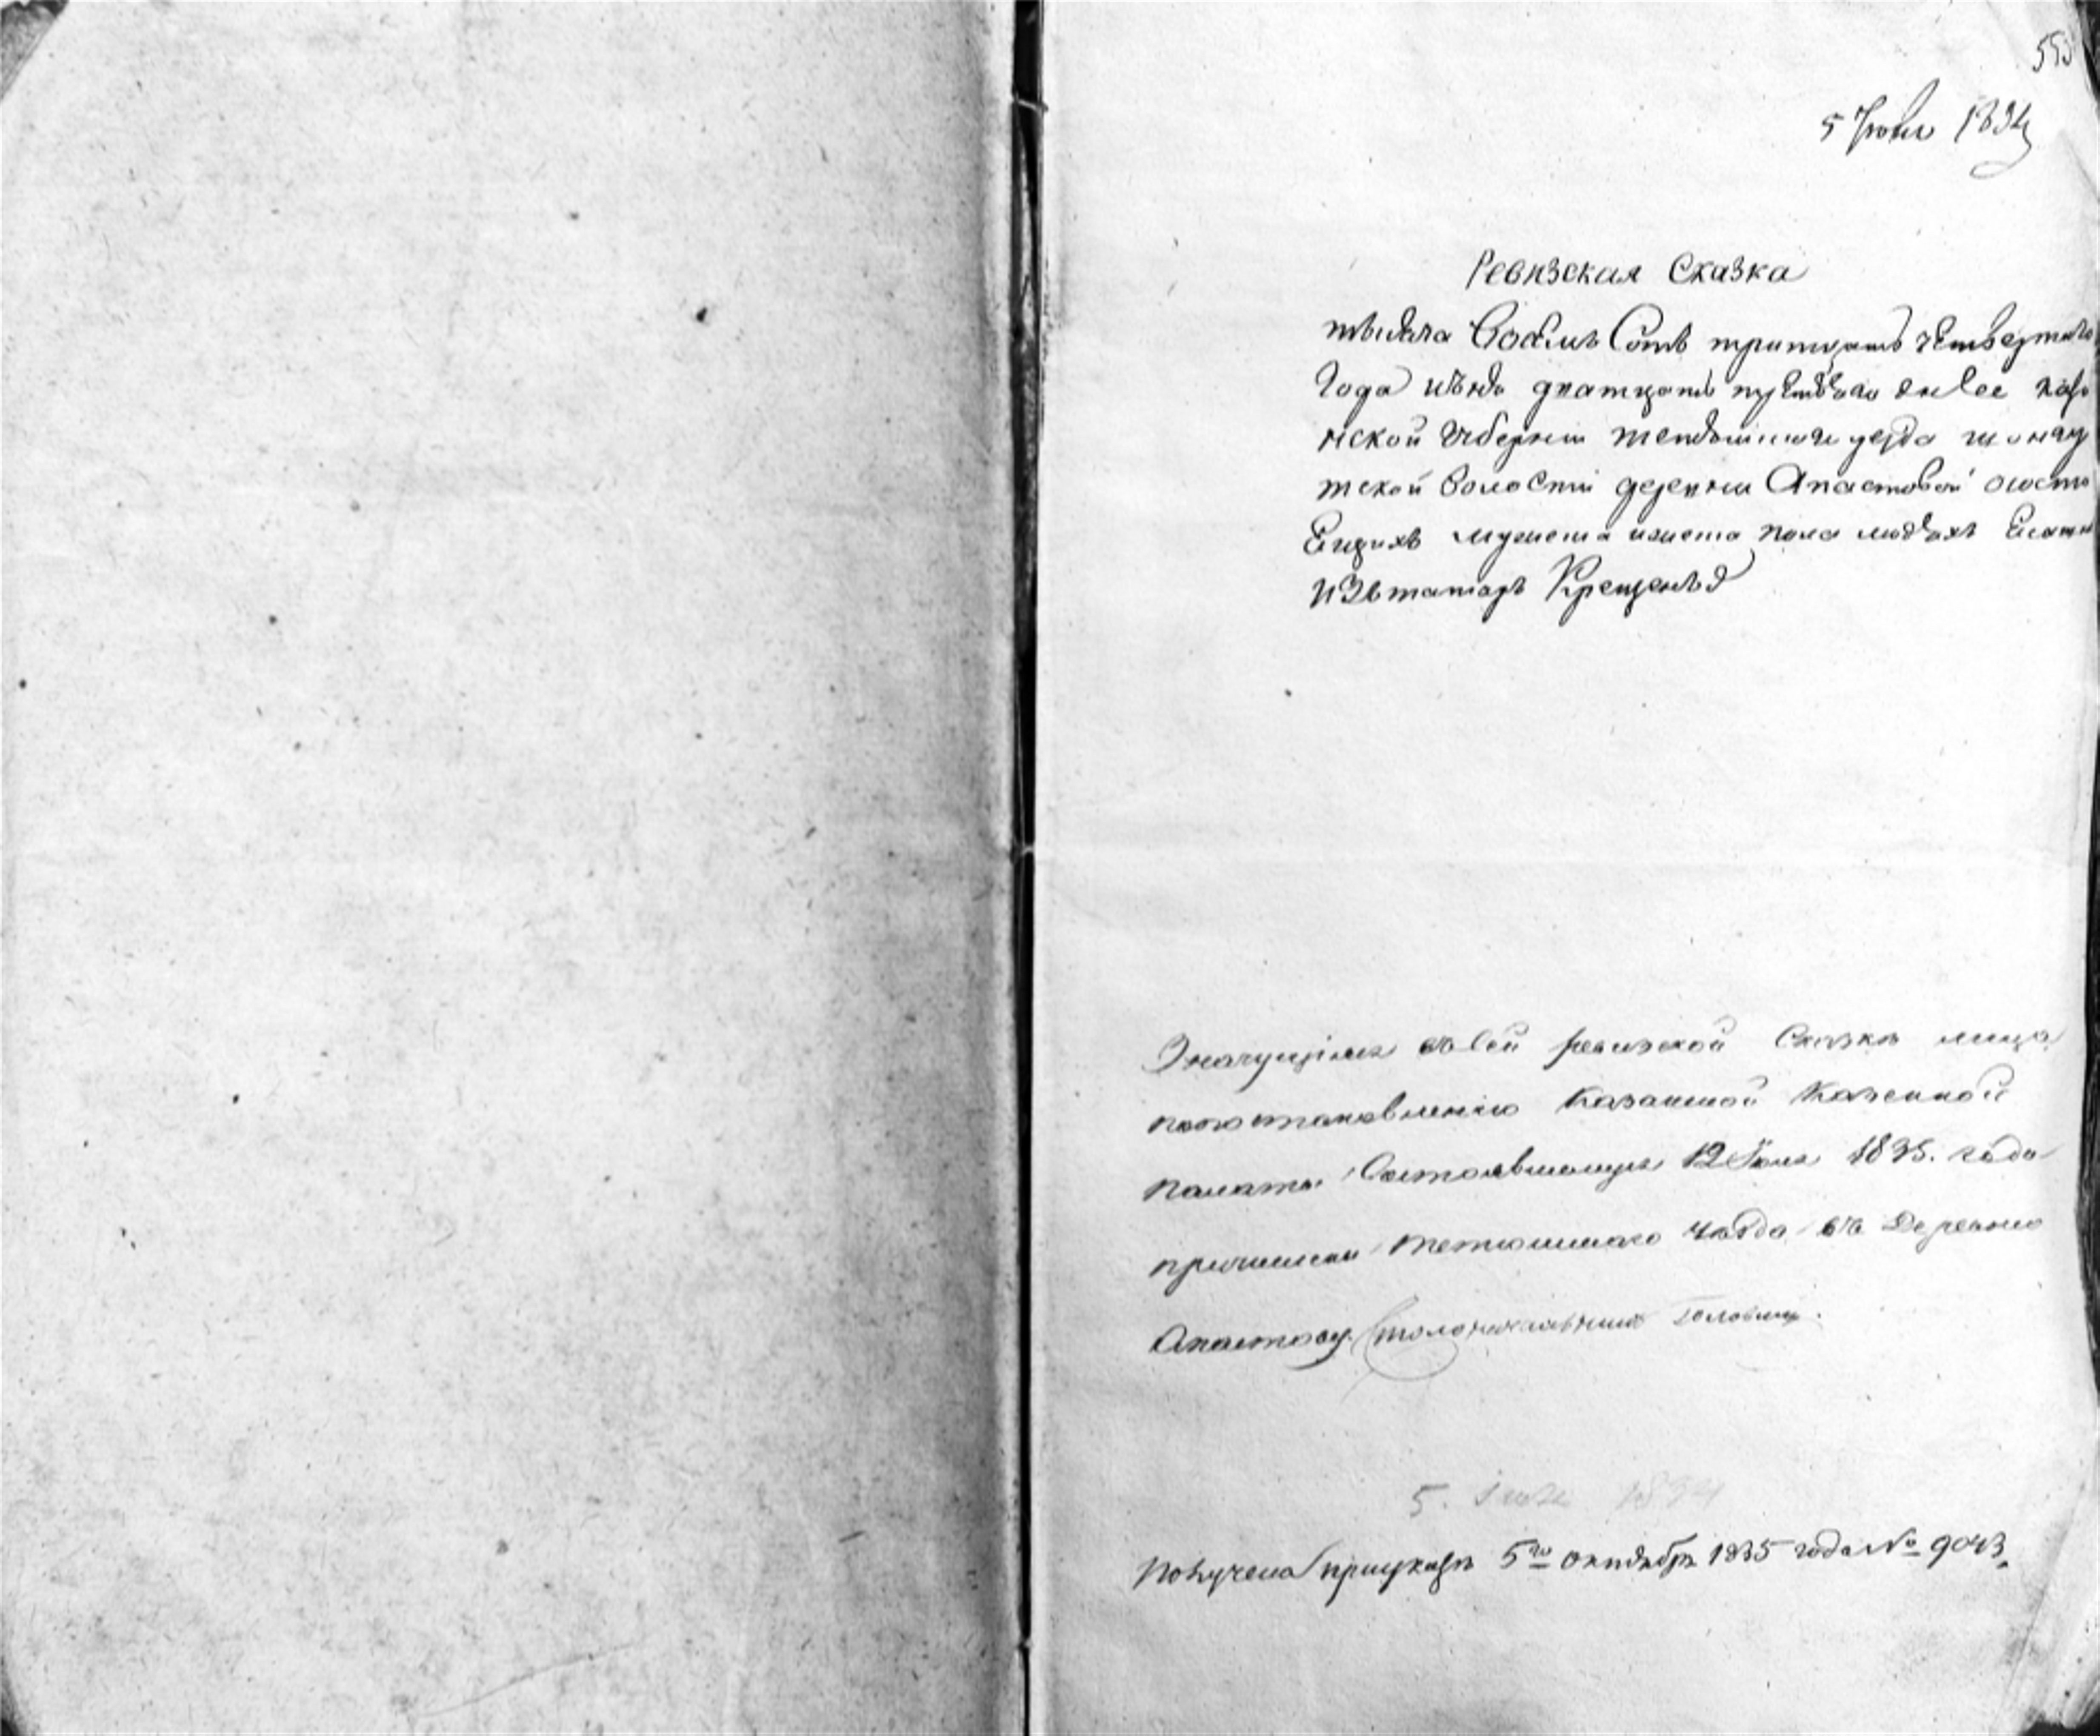 5 Июня 1834
Ревизская Сказка
тысяча Восемь Сотъ тритцать четвертаго
Года июня дватцать пятаго дня каза
нской губернии уезда
тской волости деревни Апастовой состо
мужеска и женска пола людяхъ
изъ татаръ Крещеныя
Значущіяся въ сей ревизской Сказке лица
по постановленію Казанской Казенной
Палаты Состоявшемуся 12 Іюля 1835. года
причислены Тетюшскаго уезда въ Деревню
Апастову. Столоначальникъ Головинъ.
5. Іюля 1834
Получена при указе 5го октября 1835 года №